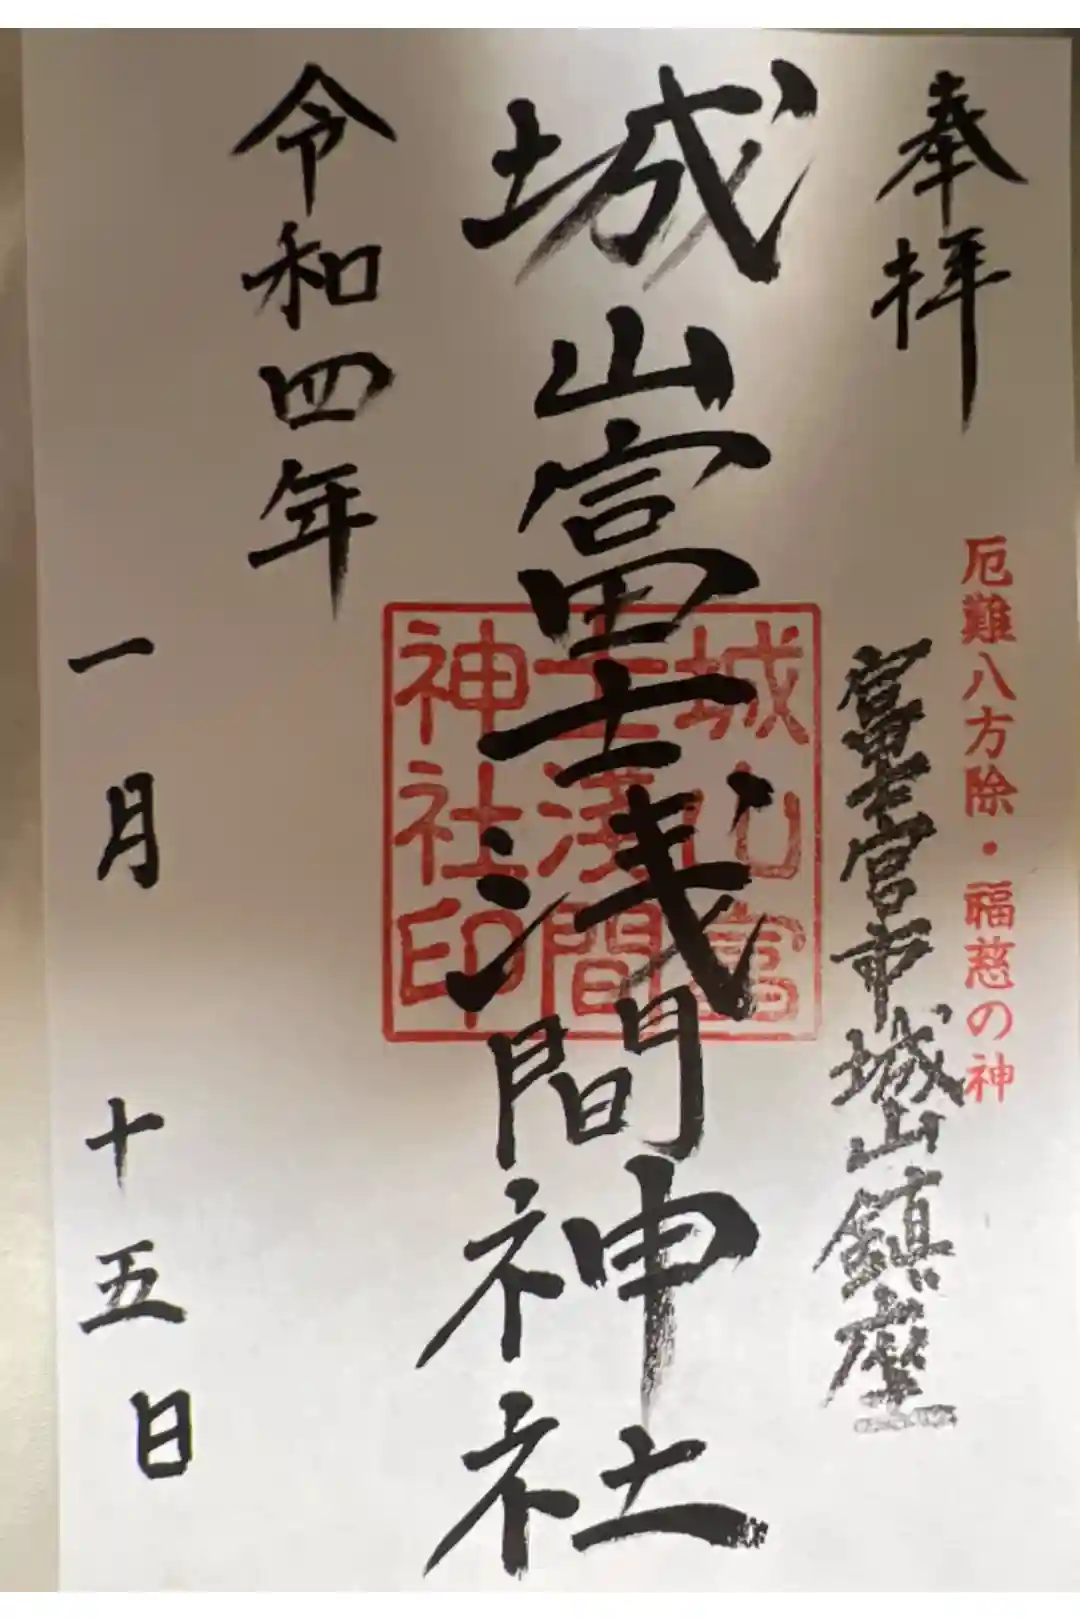 奉拝
厄難八方除・福慈の神
富士宮市城山鎮座
城山富士浅間神社
城山富
士淺間
神社印
令和四年
一月十五日